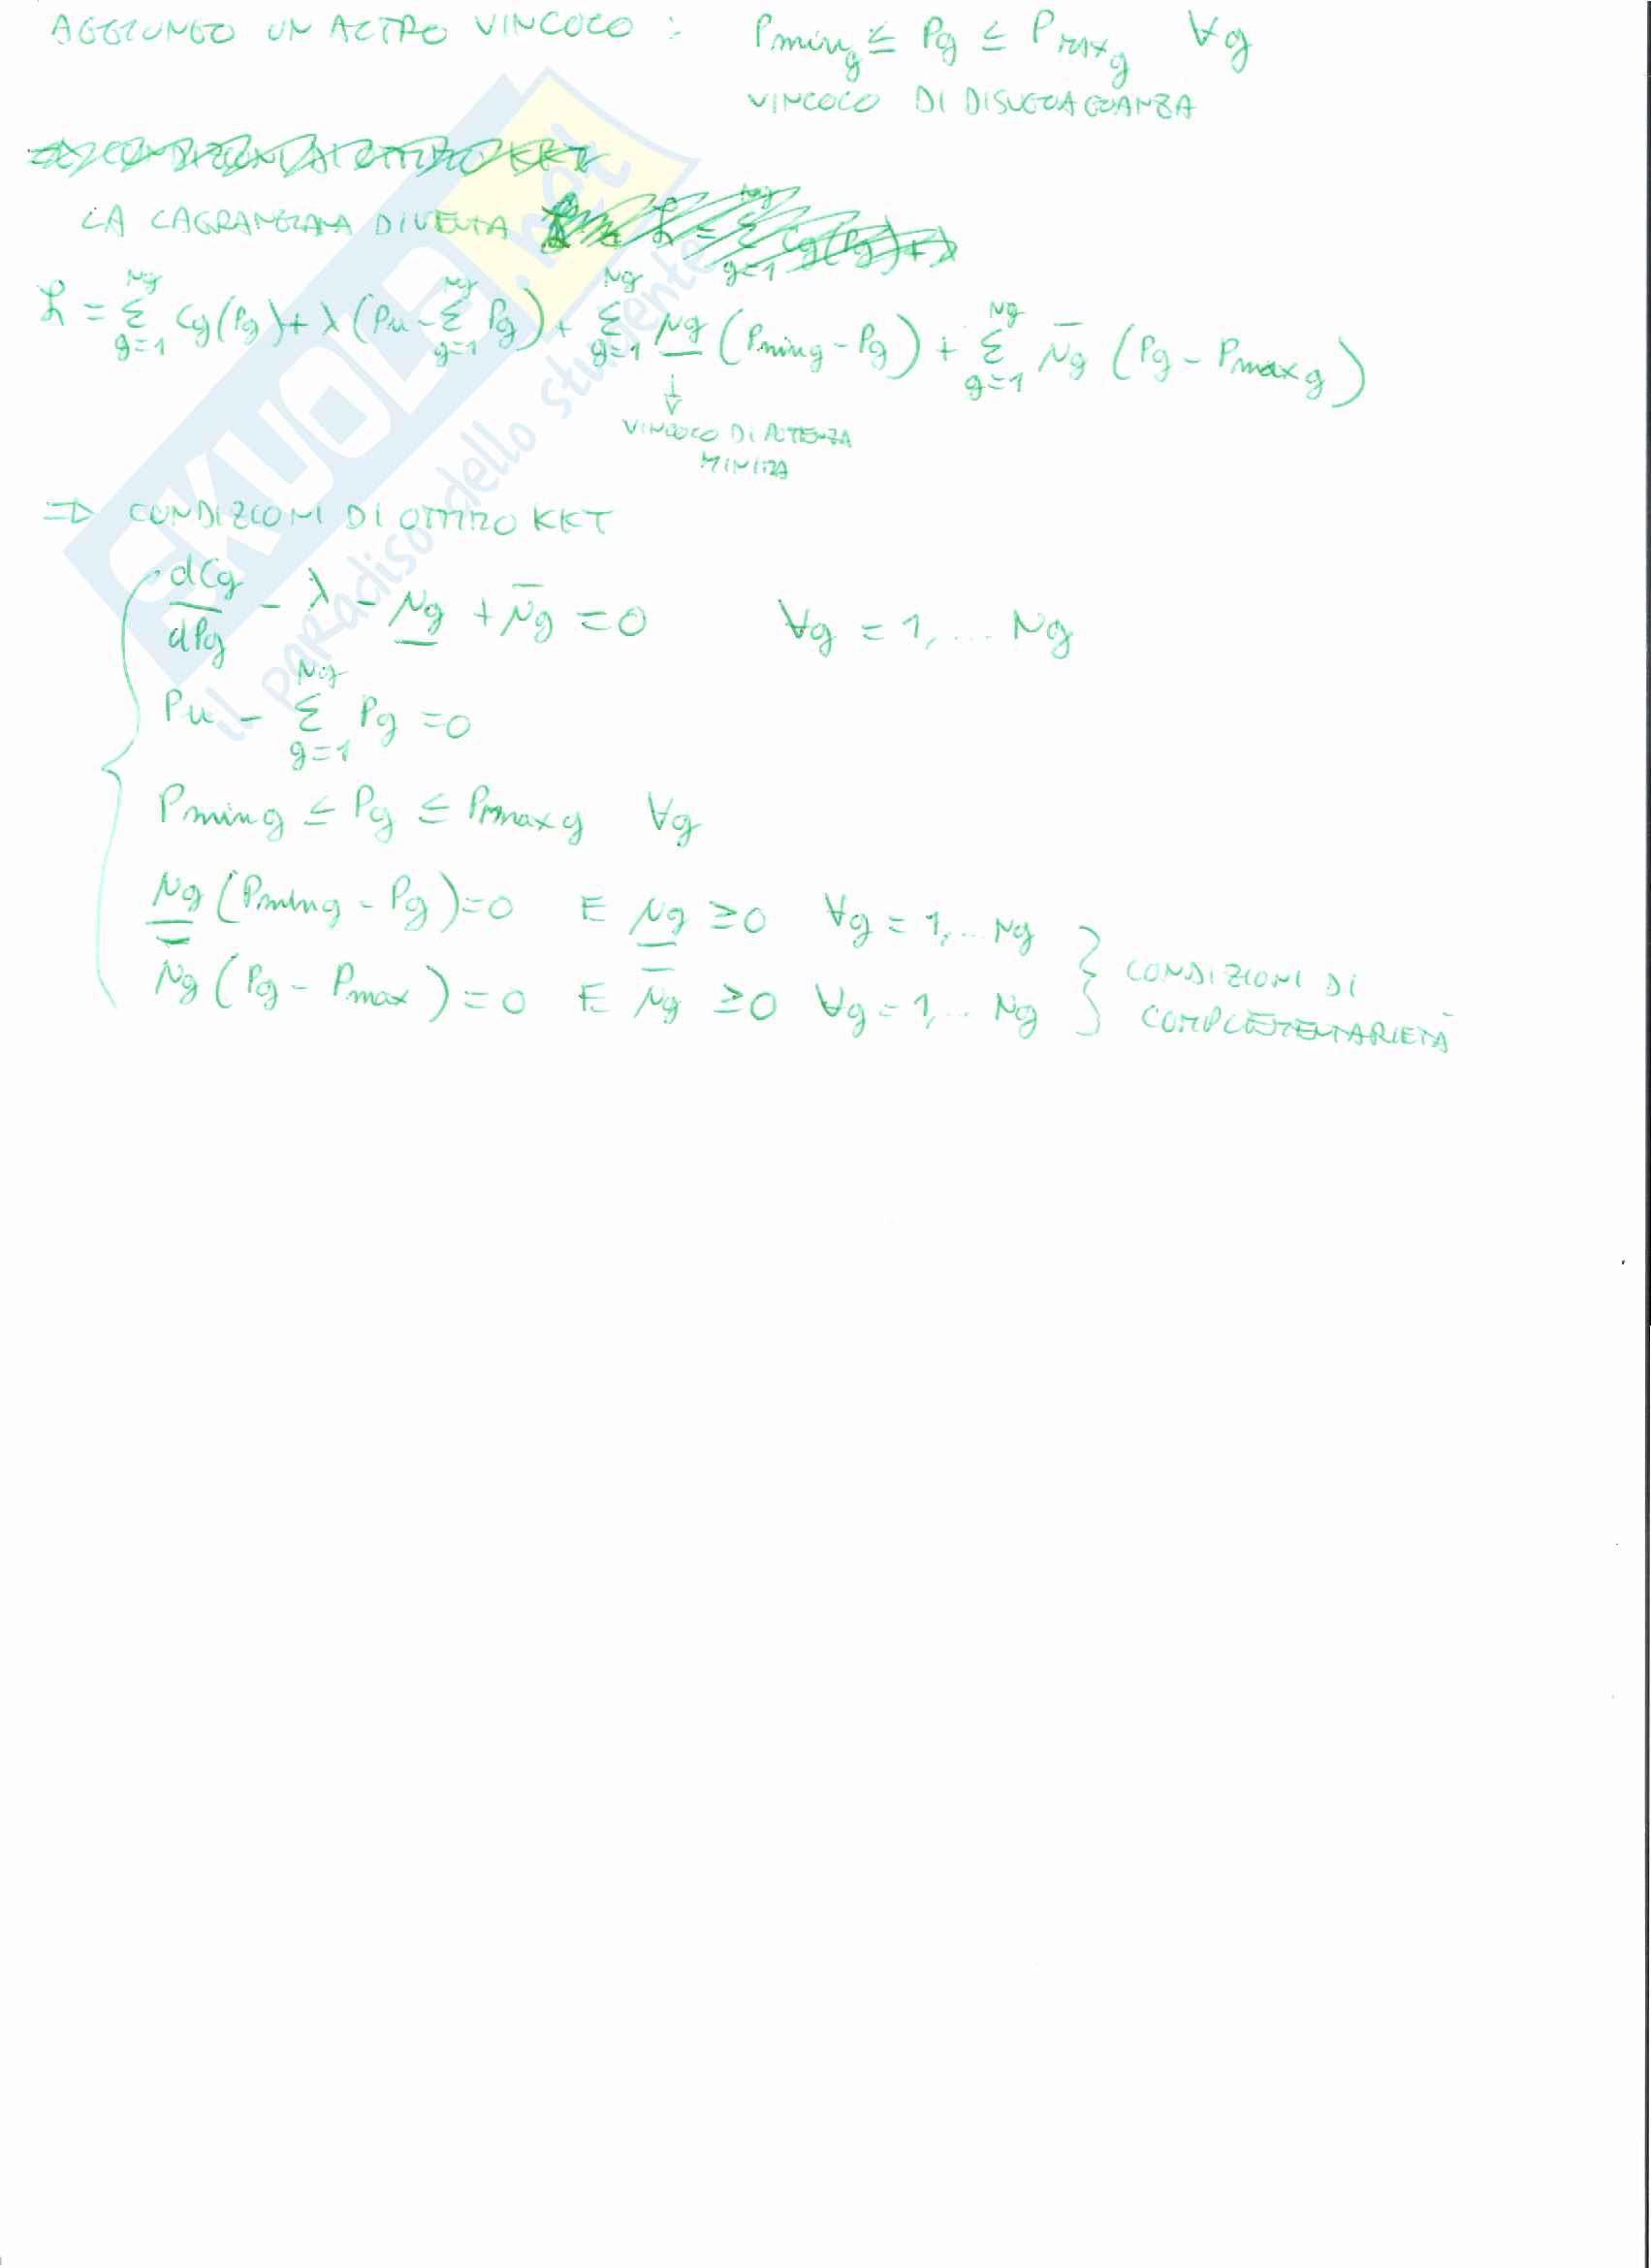 AGGIUNGO UN ALTRO VINCOLO : Pmin_g ≤ Pg ≤ Pmax_g ∀g
VINCOLO DI DISUGUAGLIANZA
LA LAGRANGIANA DIVENTA
ℒ = Σ_{g=1}^{Ng} Cg(Pg) + λ(Pu - Σ_{g=1}^{Ng} Pg) + Σ_{g=1}^{Ng} \underline{μg} (Pmin_g - Pg) + Σ_{g=1}^{Ng} \overline{μg} (Pg - Pmax_g)
↓
VINCOLO DI POTENZA
MINIMA
⇒ CONDIZIONI DI OTTIMO KKT
dCg/dPg - λ - \underline{μg} + \overline{μg} = 0 ∀g = 1, ... Ng
Pu - Σ_{g=1}^{Ng} Pg = 0
Pmin_g ≤ Pg ≤ Pmax_g ∀g
\underline{μg} (Pmin_g - Pg) = 0 E \underline{μg} ≥ 0 ∀g = 1, ... Ng
\overline{μg} (Pg - Pmax) = 0 E \overline{μg} ≥ 0 ∀g = 1, ... Ng
} CONDIZIONI DI
COMPLEMENTARIETÀ
SKUOLA.net
il paradiso dello studente